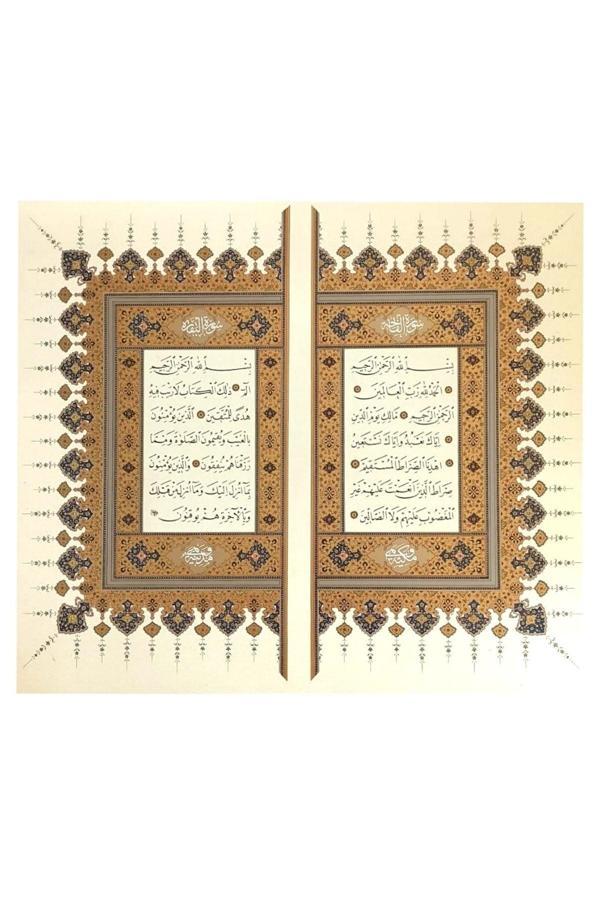 سورة الفاتحة
بِسْمِ اللهِ الرَّحْمٰنِ الرَّحِيمِ
اَلْحَمْدُ لِلّٰهِ رَبِّ الْعَالَمِينَ
اَلرَّحْمٰنِ الرَّحِيمِ مَالِكِ يَوْمِ الدِّينِ
اِيَّاكَ نَعْبُدُ وَاِيَّاكَ نَسْتَعِينُ
اِهْدِنَا الصِّرَاطَ الْمُسْتَقِيمَ
صِرَاطَ الَّذِينَ اَنْعَمْتَ عَلَيْهِمْ غَيْرِ
الْمَغْضُوبِ عَلَيْهِمْ وَلَا الضَّالِّينَ
وهي مكية
سورة البقرة
بِسْمِ اللهِ الرَّحْمٰنِ الرَّحِيمِ
الٓمٓ ذٰلِكَ الْكِتَابُ لَا رَيْبَ فِيهِ
هُدًى لِلْمُتَّقِينَ اَلَّذِينَ يُؤْمِنُونَ
بِالْغَيْبِ وَيُقِيمُونَ الصَّلٰوةَ وَمِمَّا
رَزَقْنَاهُمْ يُنْفِقُونَ وَالَّذِينَ يُؤْمِنُونَ
بِمَا اُنْزِلَ اِلَيْكَ وَمَا اُنْزِلَ مِنْ قَبْلِكَ
وَبِالْاٰخِرَةِ هُمْ يُوقِنُونَ
وهي مدنية